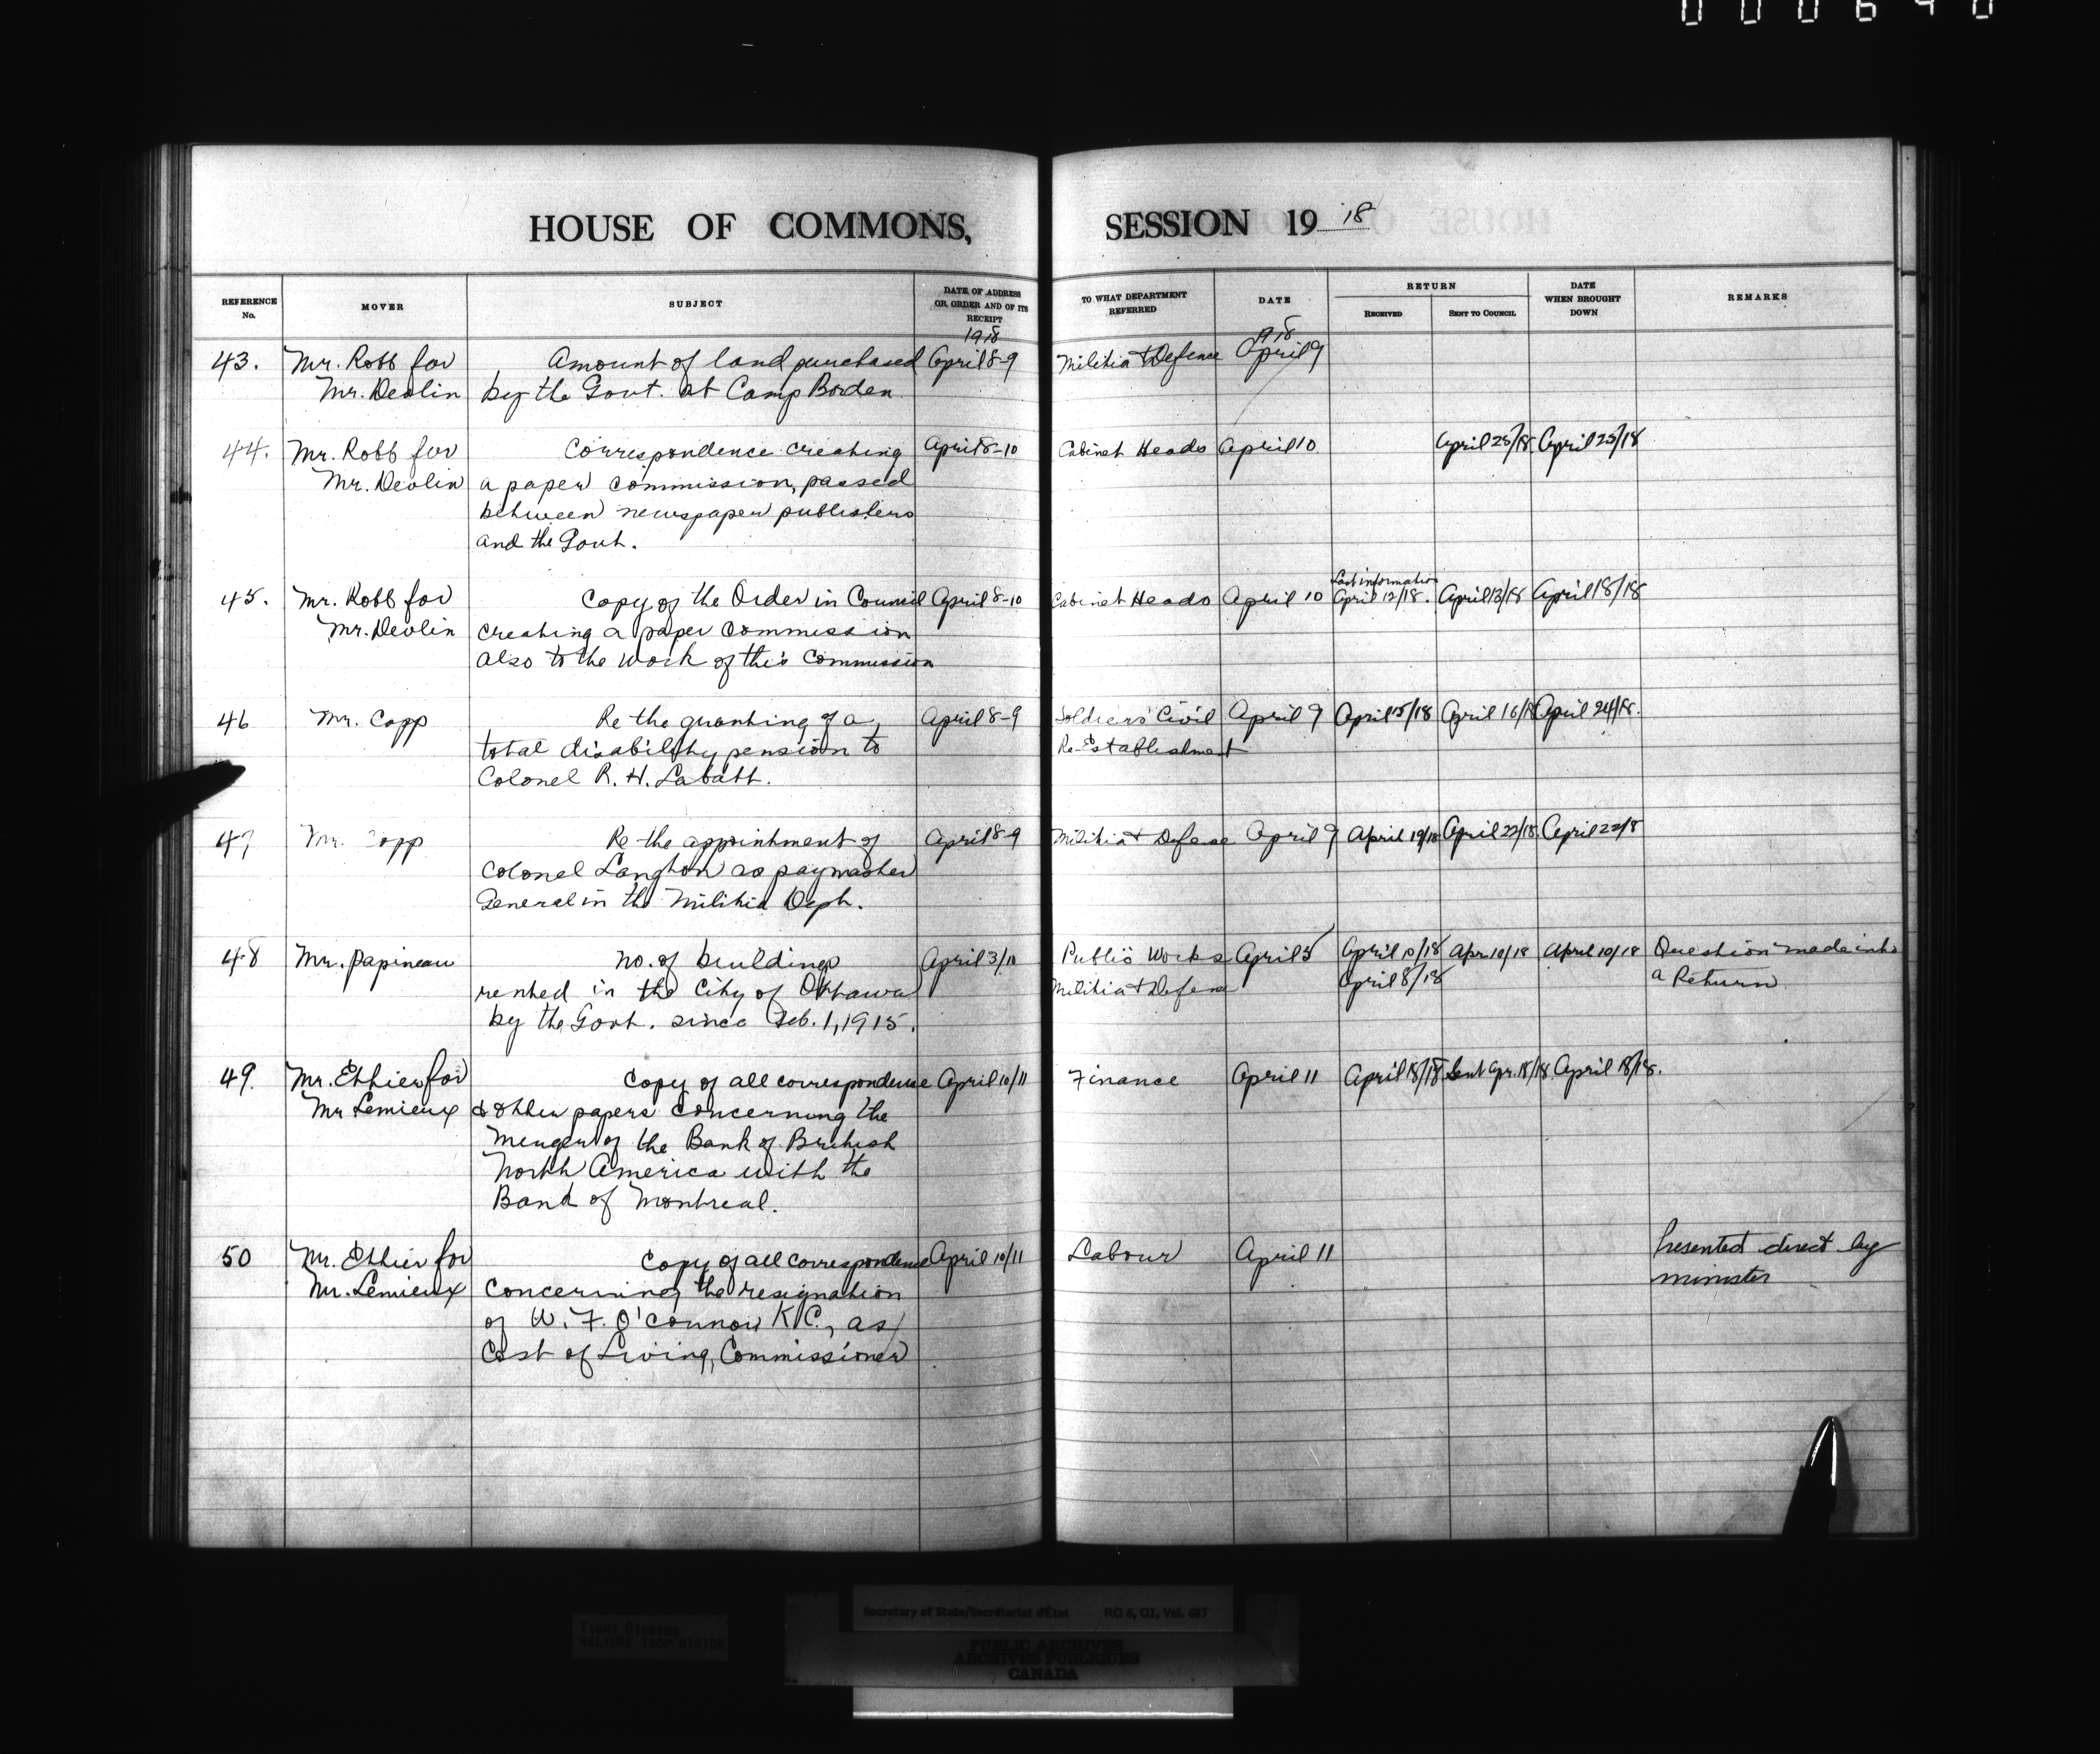 000640
HOUSE OF COMMONS, SESSION 19 18
REFERENCE No.
MOVER
SUBJECT
DATE OF ADDRESS OR ORDER AND OF ITS RECEIPT
TO WHAT DEPARTMENT REFERRED
DATE
RETURN
RECEIVED
SENT TO COUNCIL
DATE WHEN BROUGHT DOWN
REMARKS
1918
1918
43. Mr. Robb for Amount of land purchased April 8-9 Militia & Defence April 9
Mr. Devlin by the Govt. at Camp Borden
44. Mr. Robb for Correspondence creating April 8-10 Cabinet Heads April 10 April 25/18 April 25/18
Mr. Devlin a paper commission, passed
between newspaper publishers
and the Govt.
Last information
45. Mr. Robb for Copy of the Order in Council April 8-10 Cabinet Heads April 10 April 12/18. April 13/18 April 18/18
Mr. Devlin creating a paper commission
also to the work of this Commission
46 Mr. Copp Re the granting of a April 8-9 Soldiers' Civil April 9 April 15/18 April 16/18 April 24/18.
total disability pension to Re-Establishment
Colonel R. H. Labatt.
47 Mr. Copp Re the appointment of April 8-9 Militia & Defense April 9 April 19/18 April 22/18 April 22/8
Colonel Langton as paymaster
General in the Militia Dept.
48 Mr. Papineau No. of buildings April 3/18 Public Works April 5 April 10/18 Apr 10/18 April 10/18 Question made into
rented in the City of Ottawa Militia & Defense April 8/18 a Return
by the Govt. since Feb. 1, 1915.
49. Mr. Ethier for Copy of all correspondence April 10/11 Finance April 11 April 18/18 Sent Apr. 18/18 April 18/18.
Mr Lemieux & other papers concerning the
merger of the Bank of British
North America with the
Bank of Montreal.
50 Mr. Ethier for Copy of all correspondence April 10/11 Labour April 11 Presented direct by
Mr. Lemieux concerning the resignation minister
of W. F. O'Connor K.C., as
Cost of Living, Commissioner
Secretary of State/Secrétariat d'État RG 6, G1, Vol. 683
TIGHT BINDING
RELIURE TROP RIGIDE
PUBLIC ARCHIVES
ARCHIVES PUBLIQUES
CANADA